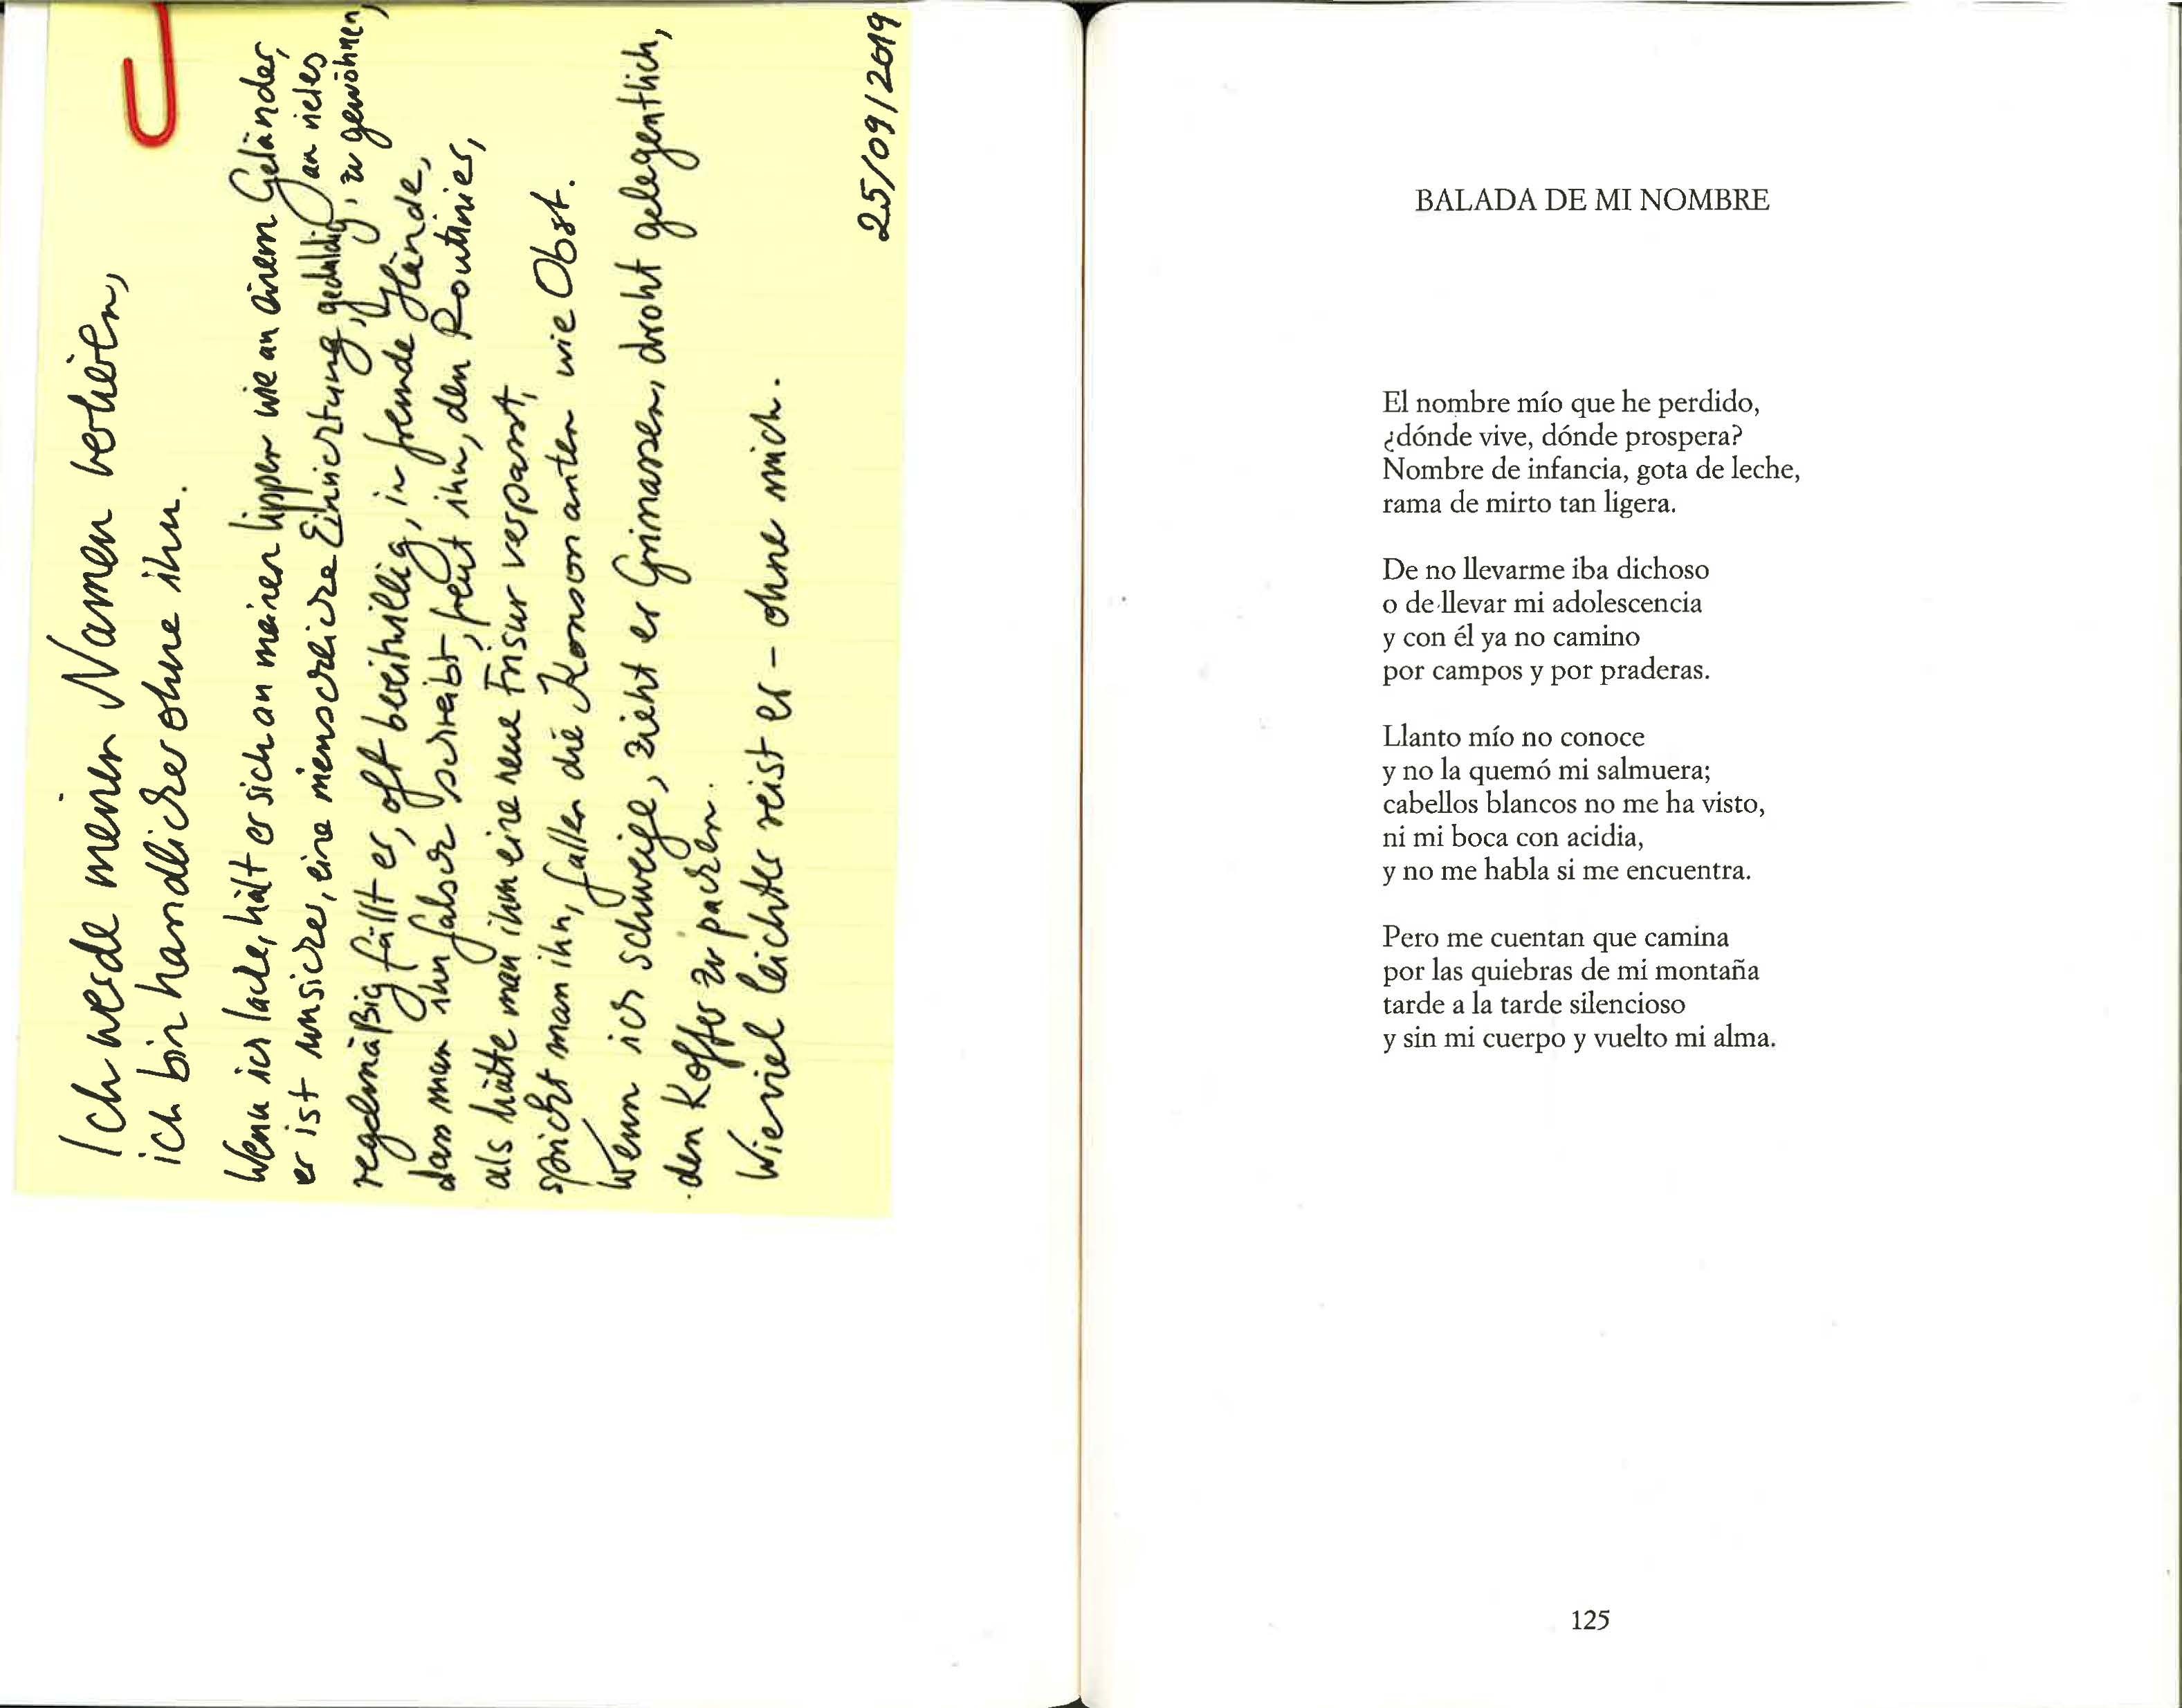 Ich werde meinen Namen verlieren,
ich bin handlicher ohne ihn.
Wenn ich lache, hält er sich an meinen Lippen wie an einem Geländer,
er ist unsicher, eine menschliche Einrichtung, geduldig, an vieles zu gewöhnen,
regelmäßig fällt er, oft bereitwillig, in fremde Hände,
dass man ihn falsch schreibt, freut ihn, den Routinier,
als hätte man ihm eine neue Frisur verpasst,
spricht man ihn, fallen die Konsonanten wie Obst.
Wenn ich schweige, zieht er Grimassen, droht gelegentlich,
den Koffer zu packen.
Wieviel leichter reist er – ohne mich.
25/09/2019
BALADA DE MI NOMBRE
El nombre mío que he perdido,
¿dónde vive, dónde prospera?
Nombre de infancia, gota de leche,
rama de mirto tan ligera.
De no llevarme iba dichoso
o de llevar mi adolescencia
y con él ya no camino
por campos y por praderas.
Llanto mío no conoce
y no la quemó mi salmuera;
cabellos blancos no me ha visto,
ni mi boca con acidia,
y no me habla si me encuentra.
Pero me cuentan que camina
por las quiebras de mi montaña
tarde a la tarde silencioso
y sin mi cuerpo y vuelto mi alma.
125